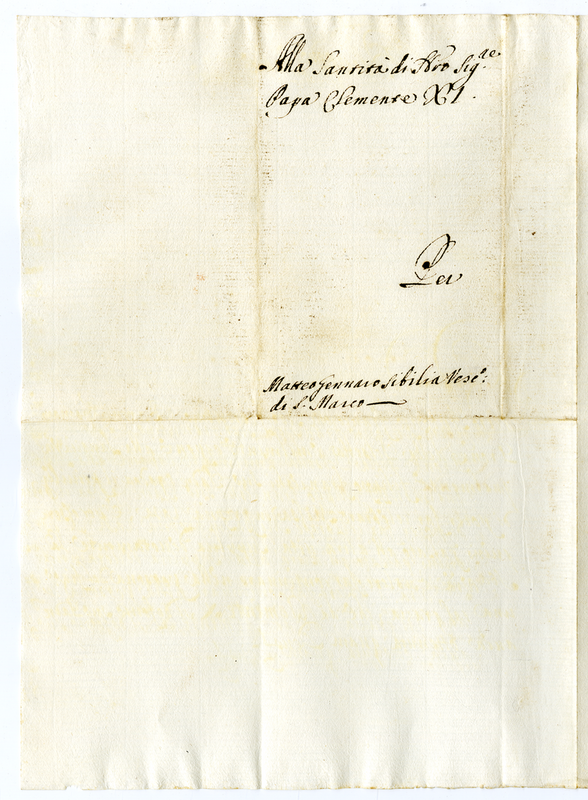 Alla Santità di Nro Sig.re
Papa Clemente XI.
Per
Matteo Gennaro Sibilia Vesc.o:
di S. Marco —